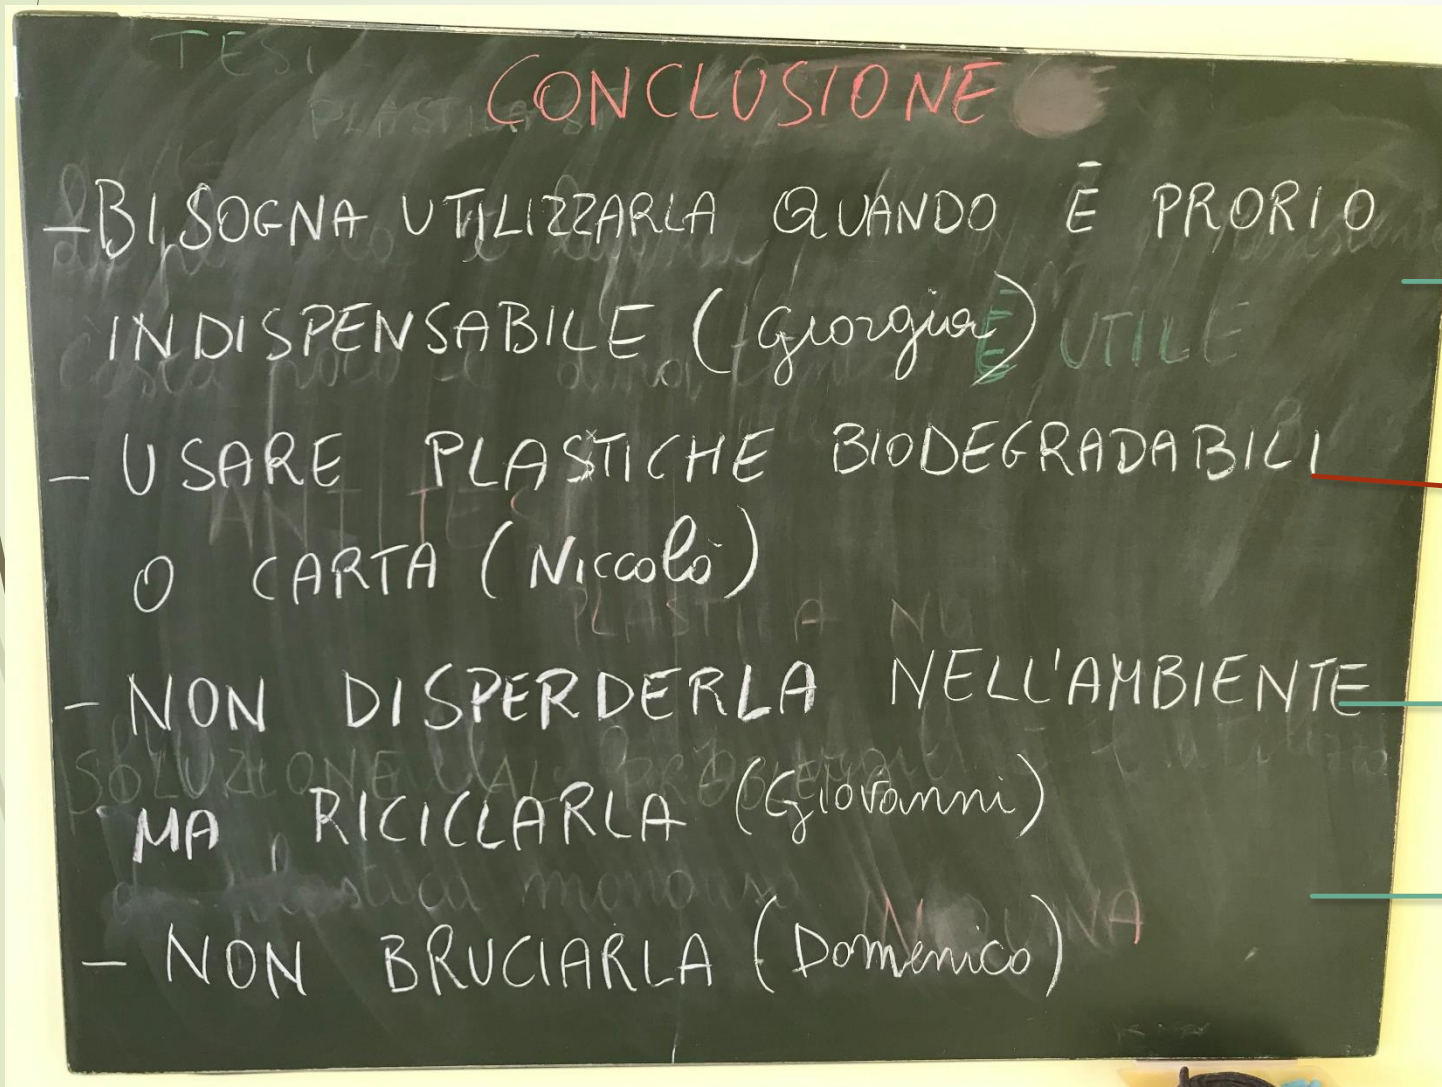 TESI
CONCLUSIONE
- BISOGNA UTILIZZARLA QUANDO È PRORIO
INDISPENSABILE (Giorgia)
È UTILE
- USARE PLASTICHE BIODEGRADABILI
O CARTA (Niccolò)
PLASTICA
- NON DISPERDERLA NELL'AMBIENTE
SOLUZIONE
MA RICICLARLA (Giovanni)
plastica monouso
- NON BRUCIARLA (Domenico)